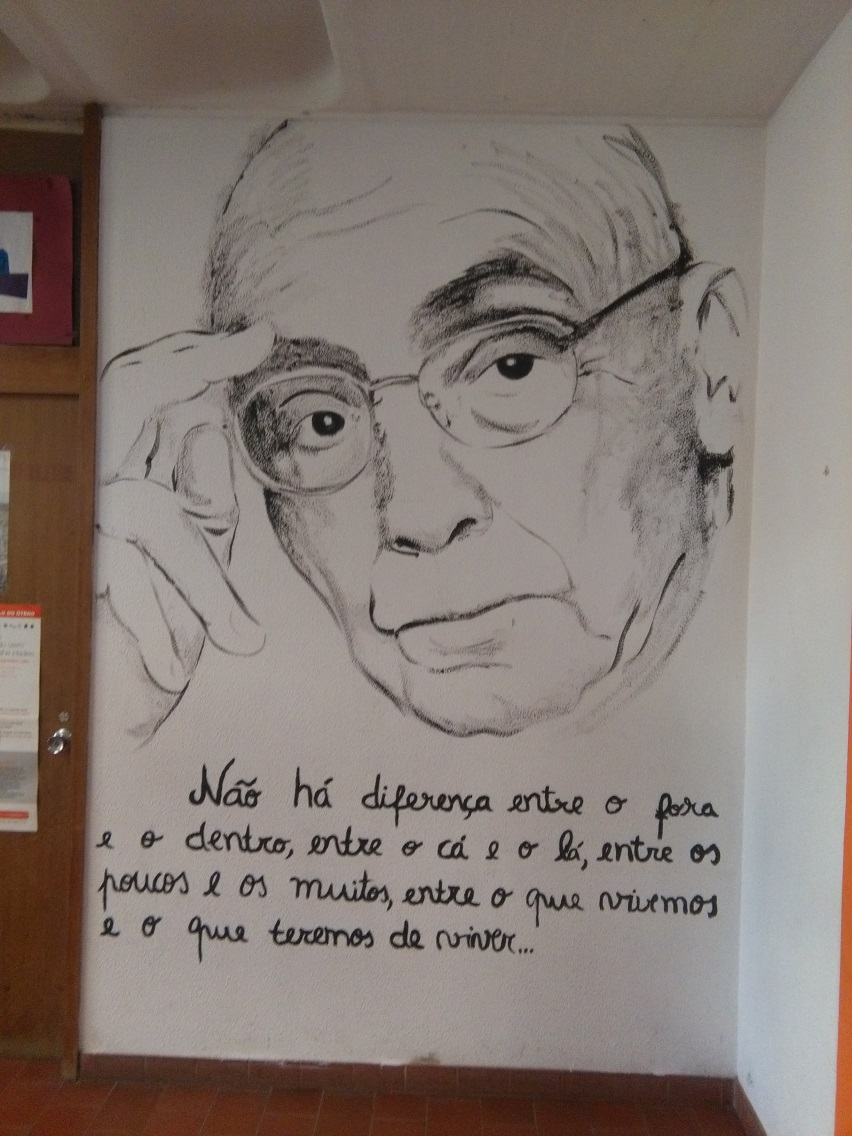 Não há diferença entre o fora
e o dentro, entre o cá e o lá, entre os
poucos e os muitos, entre o que vivemos
e o que teremos de viver...